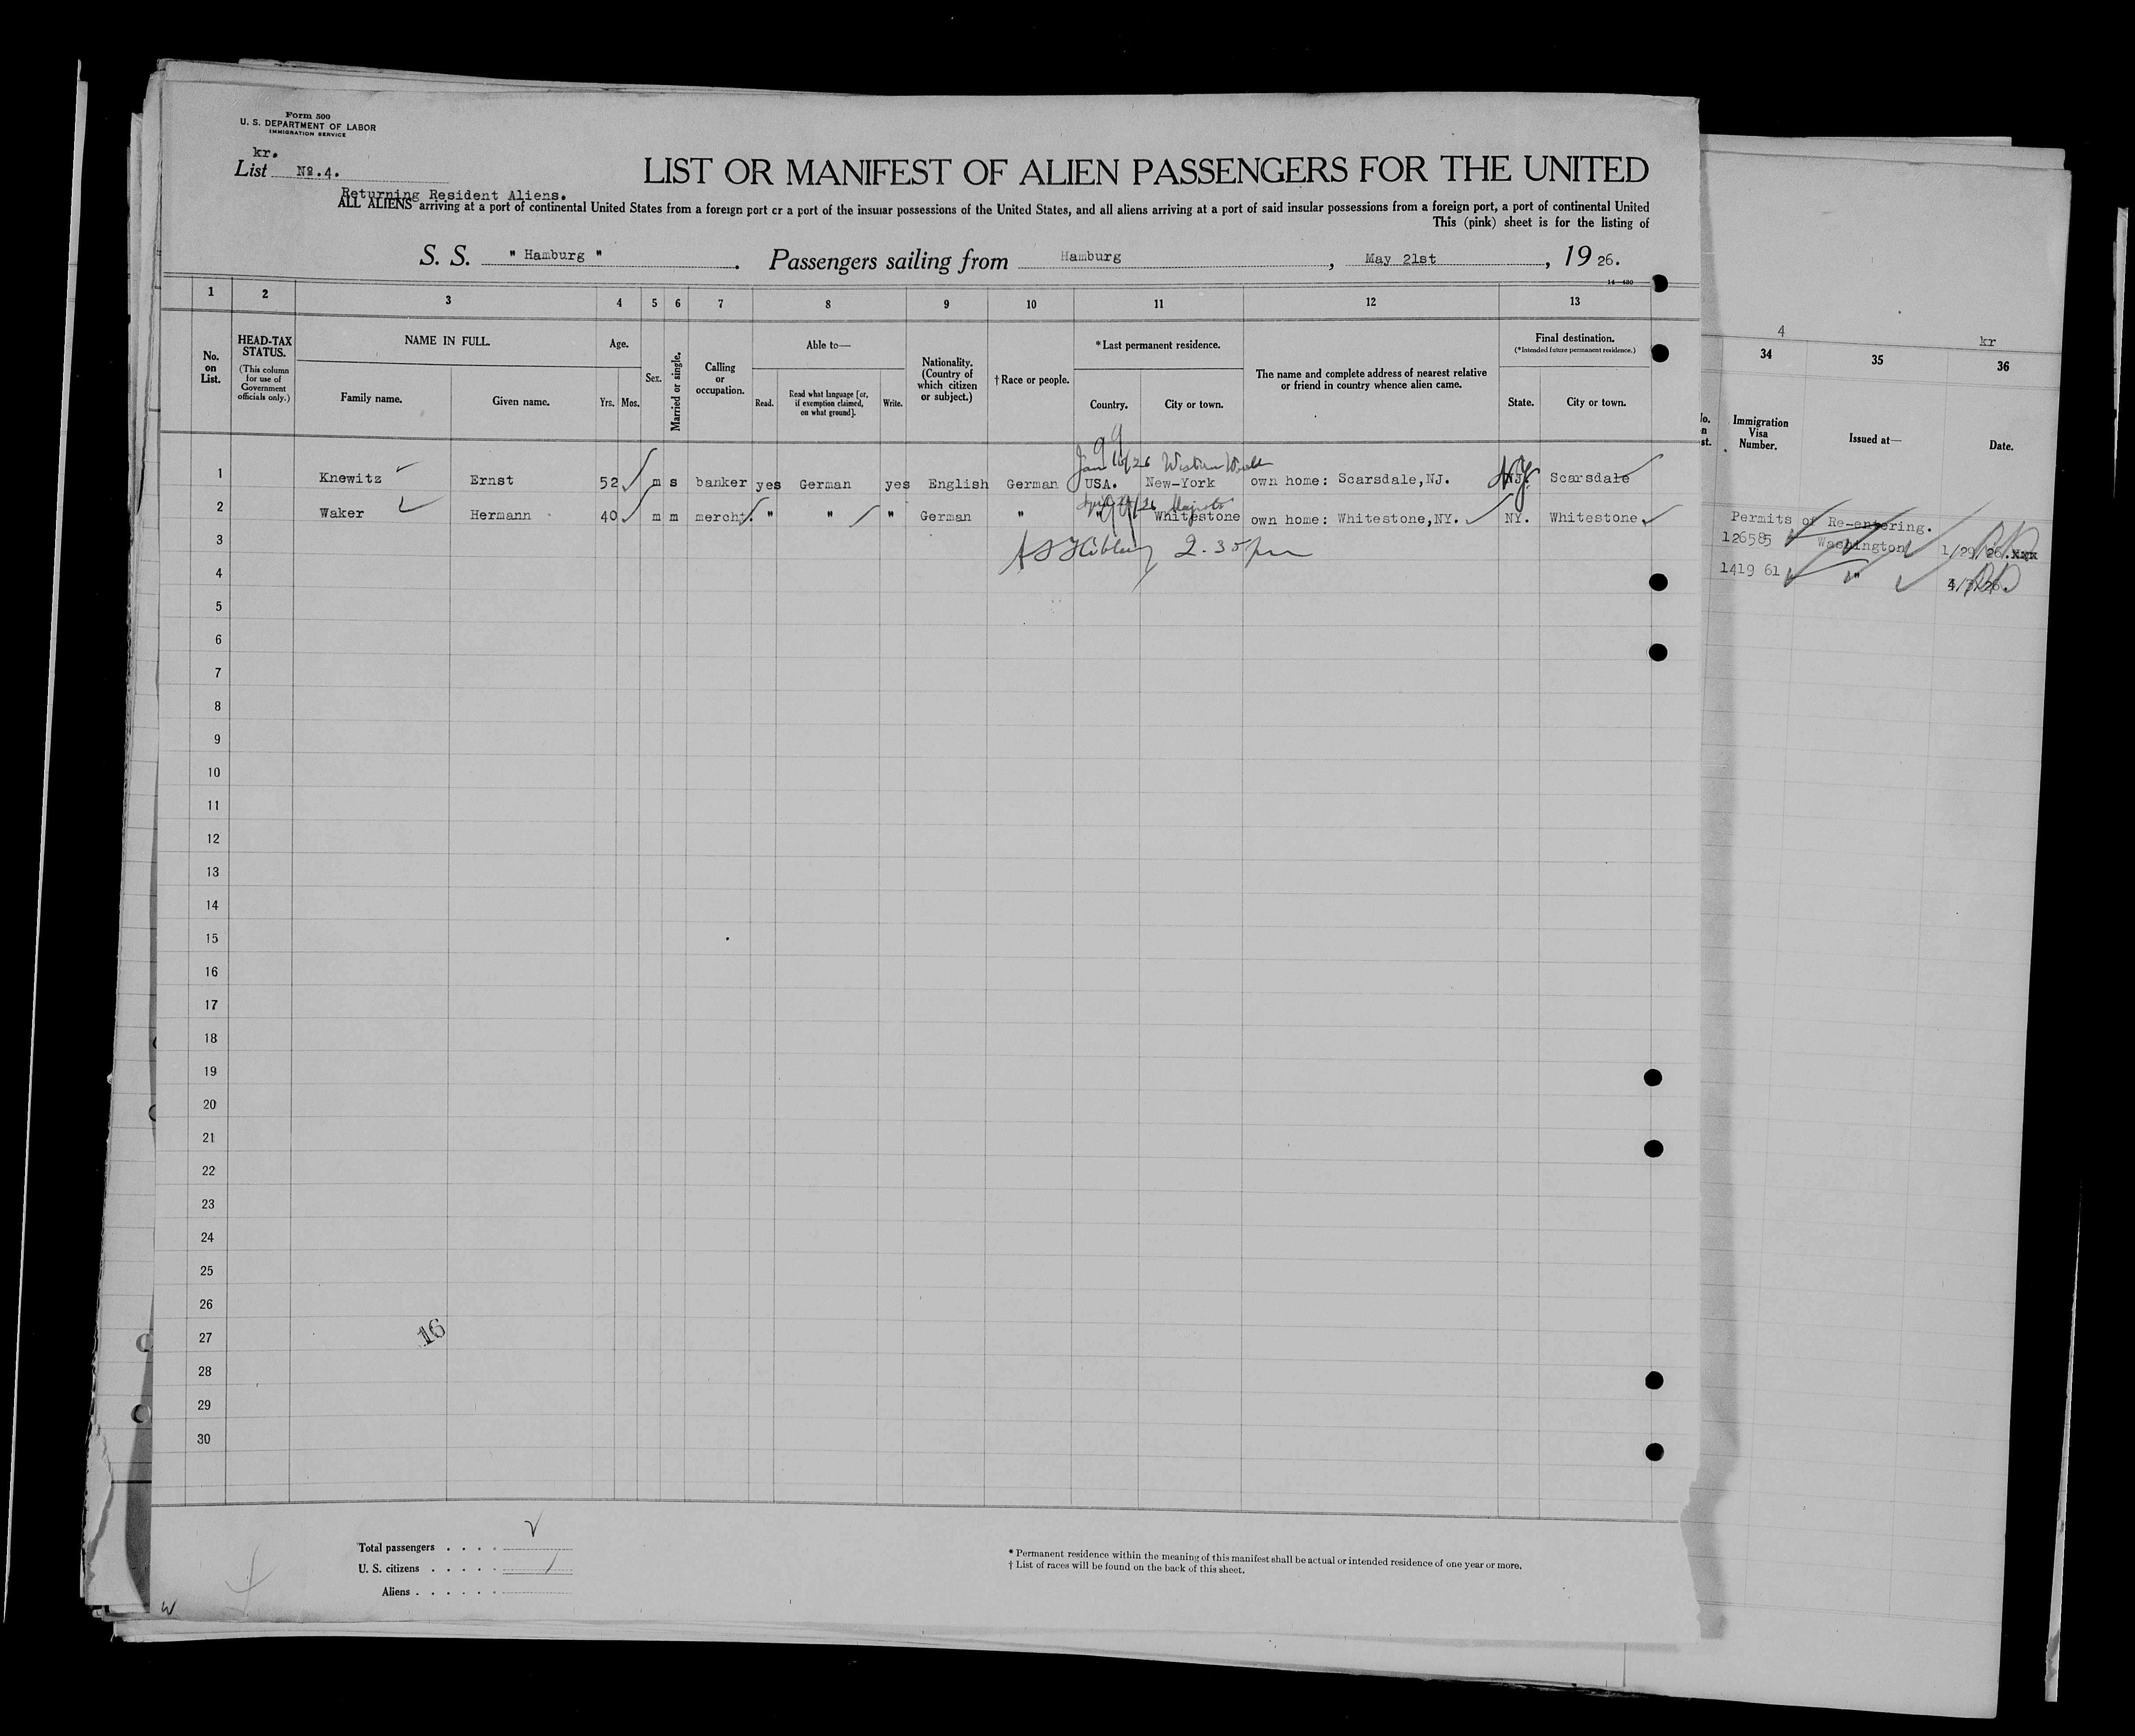 Form 500
U. S. DEPARTMENT OF LABOR
IMMIGRATION SERVICE
kr.
List No.4.
LIST OR MANIFEST OF ALIEN PASSENGERS FOR THE UNITED
Returning Resident Aliens.
ALL ALIENS arriving at a port of continental United States from a foreign port or a port of the insular possessions of the United States, and all aliens arriving at a port of said insular possessions from a foreign port, a port of continental United
This (pink) sheet is for the listing of
S. S. " Hamburg ". Passengers sailing from Hamburg, May 21st, 19 26.
14—430
1 2 3 4 5 6 7 8 9 10 11 12 13
No. on List.
HEAD-TAX STATUS.
(This column for use of Government officials only.)
NAME IN FULL.
Family name. Given name.
Age.
Yrs. Mos.
Sex.
Married or single.
Calling or occupation.
Able to—
Read. Read what language [or, if exemption claimed, on what ground]. Write.
Nationality. (Country of which citizen or subject.)
† Race or people.
*Last permanent residence.
Country. City or town.
The name and complete address of nearest relative or friend in country whence alien came.
Final destination.
(*Intended future permanent residence.)
State. City or town.
Jan 16/26 Western World
1 Knewitz Ernst 52 m s banker yes German yes English German USA. New-York own home: Scarsdale,NJ. N.Y. Scarsdale
2 Waker Hermann 40 m m mercht. " " " German " " Whitestone own home: Whitestone,NY. NY. Whitestone
3
2.30 pm
4
5
6
7
8
9
10
11
12
13
14
15
16
17
18
19
20
21
22
23
24
25
26
27
16
28
29
30
Total passengers . . . .
U. S. citizens . . . . .
Aliens . . . . . .
* Permanent residence within the meaning of this manifest shall be actual or intended residence of one year or more.
† List of races will be found on the back of this sheet.
W
4 kr
34 35 36
Immigration Visa Number. Issued at— Date.
Permits of Re-entering.
126585 Washington 1/29/26.xxx
1419 61 "